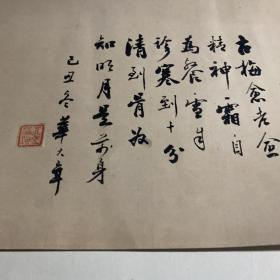 古梅愈老愈
精神霜自
為餐雪自
珍寒到十分
清到骨始
知明月是前身
己丑冬華大章